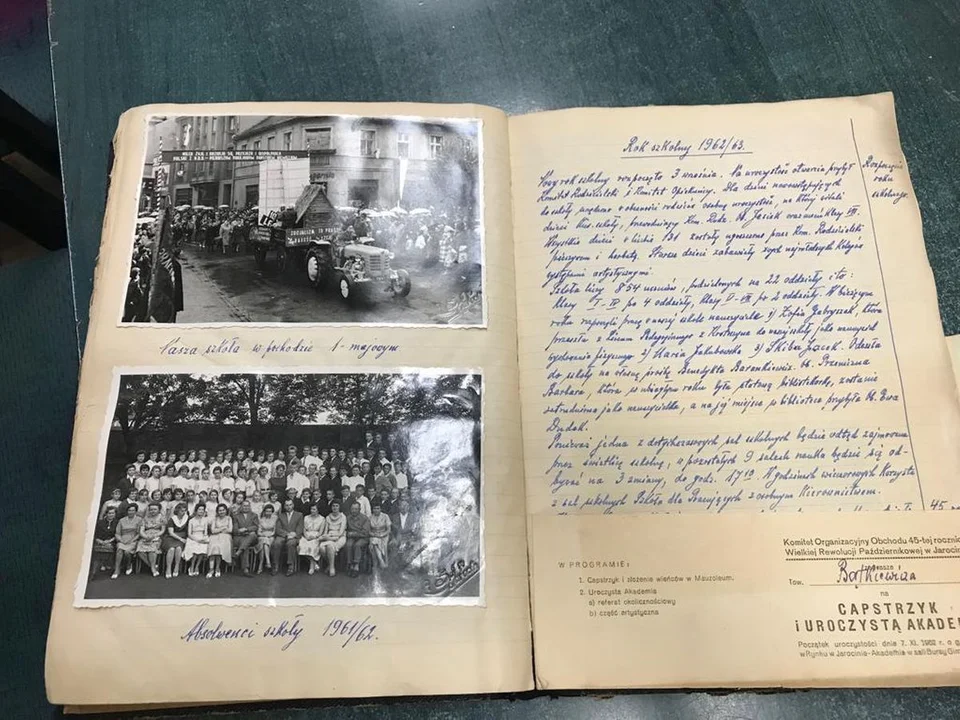 POLSKI Z N.R.D.
SOCJALIZM TO PRACA
Nasza szkoła w pochodzie 1-majowym
Absolwenci szkoły 1961/62.
Rok szkolny 1962/63.
Nowy rok szkolny rozpoczęto 3 września. Na uroczystość otwarcia przybył
Komitet Rodzicielski i Komitet Opiekuńczy. Dla dzieci nowowstępujących
do szkoły urządzono w obecności rodziców osobną uroczystość, na której witali
dzieci Kier. szkoły, przewodniczący Kom. Rodz. Ob. Jasiek oraz uczniowie klasy VII.
Wszystkie dzieci w liczbie 131 zostały ugoszczone przez Kom. Rodzicielski
pieczywem i herbatą. Starsze dzieci zabawiały swych najmłodszych kolegów
występami artystycznymi.
Szkoła liczy 854 uczniów, podzielonych na 22 oddziały i to:
klasy I-IV po 4 oddziały, klasy V-VII po 2 oddziały. W bieżącym
roku rozpoczęli pracę w naszej szkole nauczyciele 1) Zofia Gabryszak, która
przeszła z Liceum Pedagogicznego z Krotoszyna do naszej szkoły jako nauczyciel
wychowania fizycznego 2) Maria Jakubowska 3) Skiba Jacek. Odeszła
ze szkoły na własną prośbę Benedykta Barankiewicz. Ob. Przewoźna
Barbara, która w ubiegłym roku była etatową bibliotekarką, zostanie
zatrudniona jako nauczycielka, a na jej miejsce w bibliotece przybyła Ob. Ewa
Dudak.
Ponieważ jedna z dotychczasowych sal szkolnych będzie odtąd zajmowana
przez świetlicę szkolną, w pozostałych 9 salach nauka będzie się od-
bywać na 3 zmiany, do godz. 17 10 W godzinach wieczorowych korzysta
z sal szkolnych Szkoła dla Pracujących z osobnym Kierownictwem.
45
Rozpoczęcie
roku
szkolnego.
W PROGRAMIE:
1. Capstrzyk i złożenie wieńców w Mauzoleum.
2. Uroczysta Akademia
a) referat okolicznościowy
b) część artystyczna
Komitet Organizacyjny Obchodu 45-tej rocznic
Wielkiej Rewolucji Październikowej w Jarocin
Tow. Bartkiewicza
na
CAPSTRZYK
i UROCZYSTĄ AKADEM
Początek uroczystości dnia 7. XI. 1962 r. o g
w Rynku w Jarocinie-Akademia w sali Bursy Gim